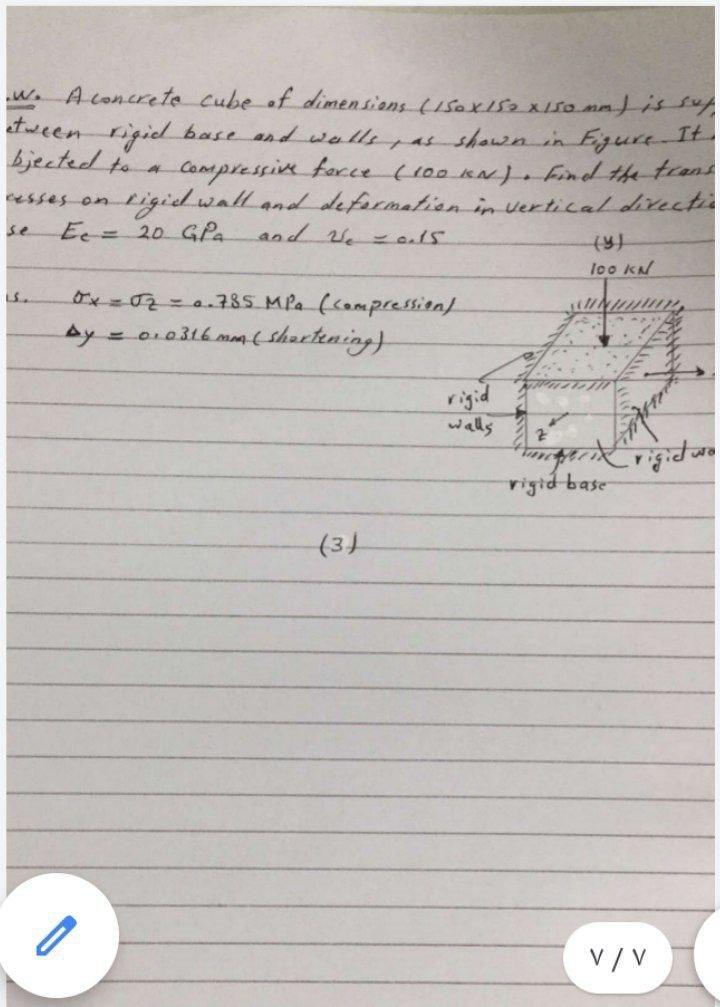 .w. A concrete cube of dimensions (150x150 x150 mm) is sup
etween rigid base and walls, as shown in Figure. It
bjected to a compressive force (100 KN). Find the trans
esses on rigid wall and deformation in vertical directio
se Ec = 20 GPa and νc = 0.15
(y)
100 KN
s. σx = σz = 0.785 MPa (compression)
Δy = 0.0316 mm (shortening)
rigid
walls
z
rigid wa
rigid base
(3)
٧ / ٧